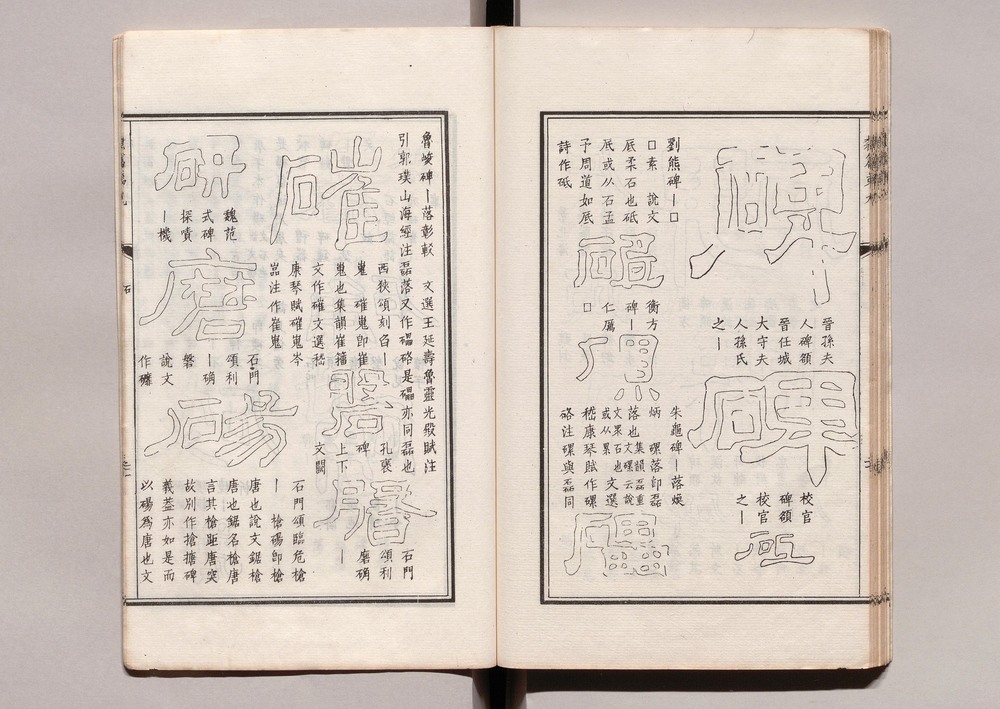 碑
晉孫夫
人碑額
晉任城
大守夫
人孫氏
之｜
碑
校官
碑額
校官
之｜
劉熊碑｜□
□素　說文
厎柔石也砥
厎或从石孟
予周道如厎
詩作砥
衡方
碑｜
仁厲
□
磥
朱龜碑｜落煥
炳　磥落卽磊
落也集韻磊重
文磥云說
文累石也文選
或从累
嵇康琴賦作磥
硌注磥與磊同
礧
魯峻碑｜落彰較　文選王延壽魯靈光殿賦注
引郭璞山海經注磊落又作礧硌是礧亦同磊也
磪
西狹頌刻臽｜
嵬　磪嵬卽崔
嵬也集韻崔籀
文作磪文選嵇
康琴賦磪嵬岑
嵓注作崔嵬
磐
孔褒
碑
上下
文闕
石門
頌利
磨确
｜
研
魏范
式碑
探嘖
｜機
磨
石門
頌利
｜确
磐
說文
作䃺
碭
石門頌臨危槍
｜　槍碭卽槍
唐也說文鋸槍
唐也鋸名槍唐
言其槍距唐突
故別作搶搪碑
義蓋亦如是而
以碭爲唐也文
石